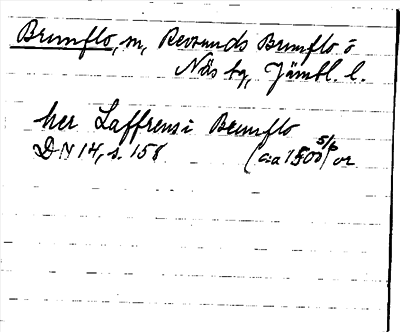 Brunflo, sn, Revsunds Brunflo o
Näs tg, Jämtl. l.
her Laffrens i Brunflo
DN 14, s. 158 (ca 1500 5/6 or